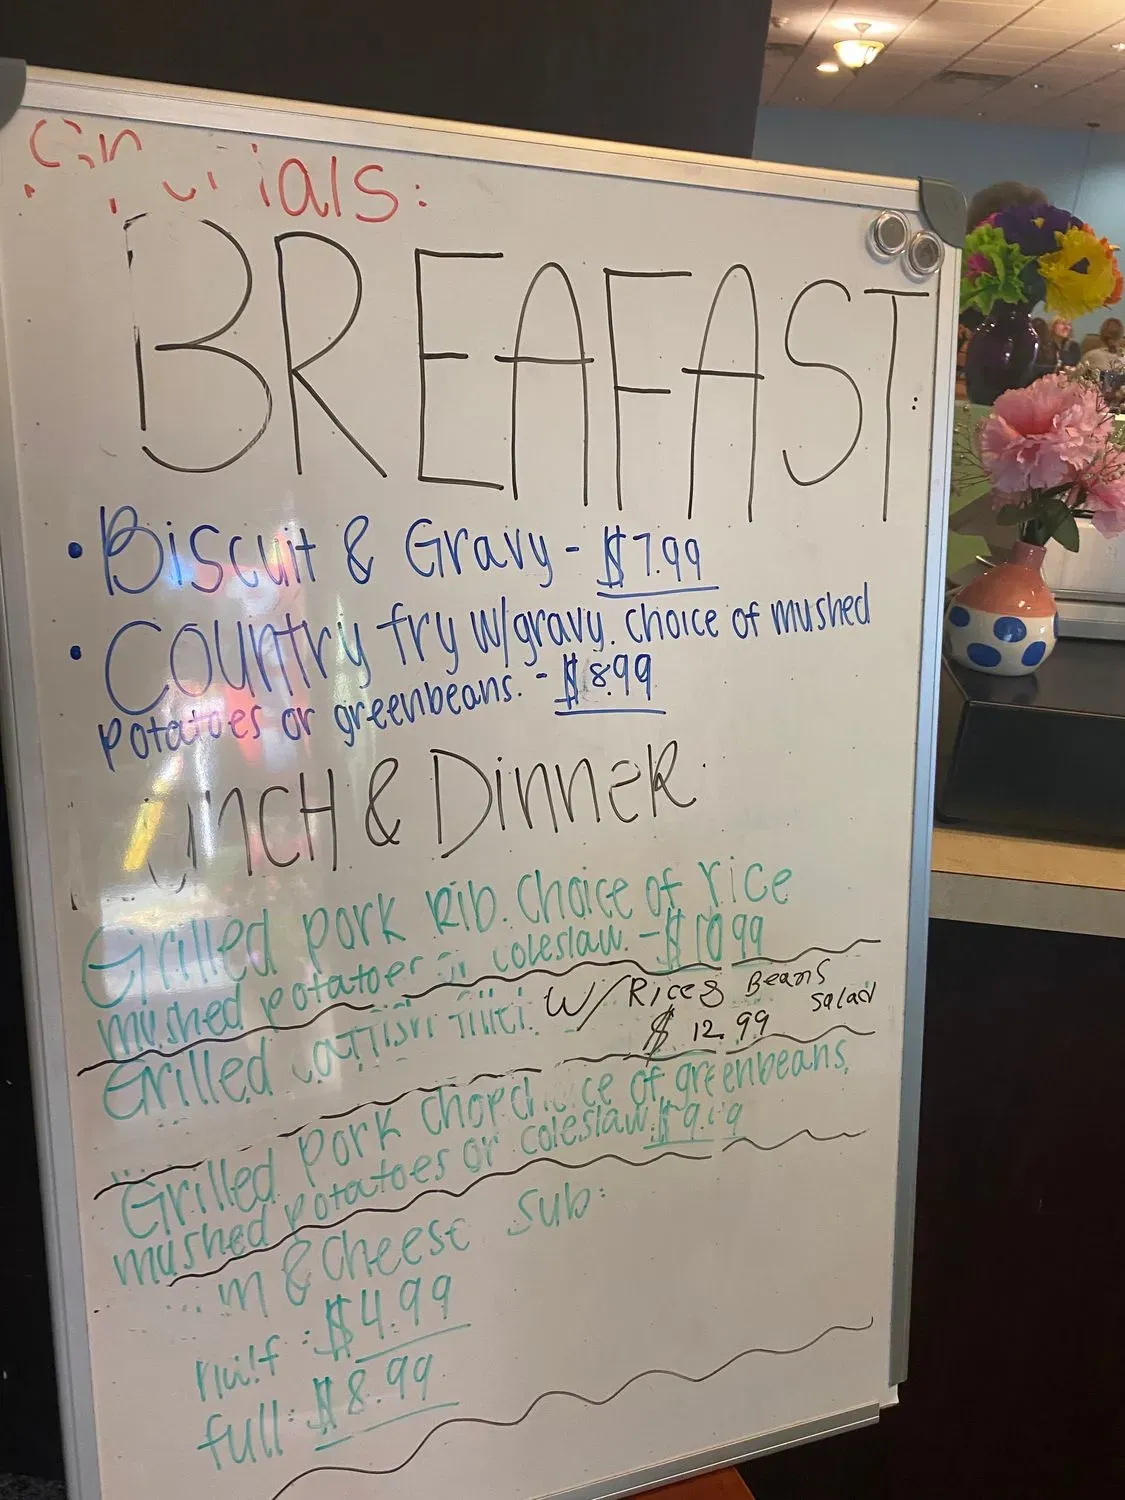 BREAFAST:
• Biscuit & Gravy - $7.99
• Country fry w/gravy. choice of mushed
potatoes or greenbeans. - $8.99
& Dinner
Grilled pork Rib. Choice of rice
mushed potatoes or coleslaw. - $10.99
Grilled W/ Rice & Beans
Salad
$12.99
Grilled pork chop choice of greenbeans,
mushed potatoes or coleslaw.
& Cheese Sub:
$4.99
full: $8.99